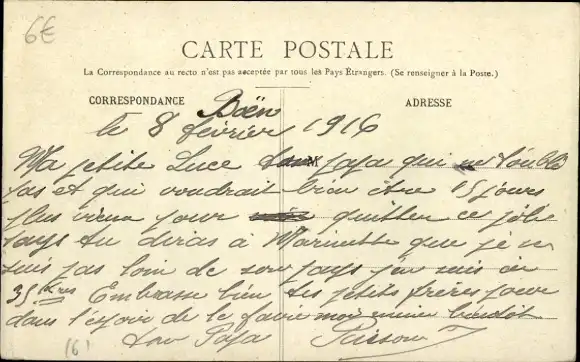 6€
CARTE POSTALE
La Correspondance au recto n'est pas acceptée par tous les Pays Étrangers. (Se renseigner à la Poste.)
CORRESPONDANCE
ADRESSE
Boën
le 8 février 1916
Ma petite Luce ton papa qui ne t'oublie
pas et qui voudrait bien être 15 jours
plus vieux pour quitter ce joli
pays tu diras à Marinette que je ne
suis pas loin de son pays j'en suis à
35 Embrasse bien tes petits frères pour
dans l'espoir de le faire moi même bientôt
Ton Papa